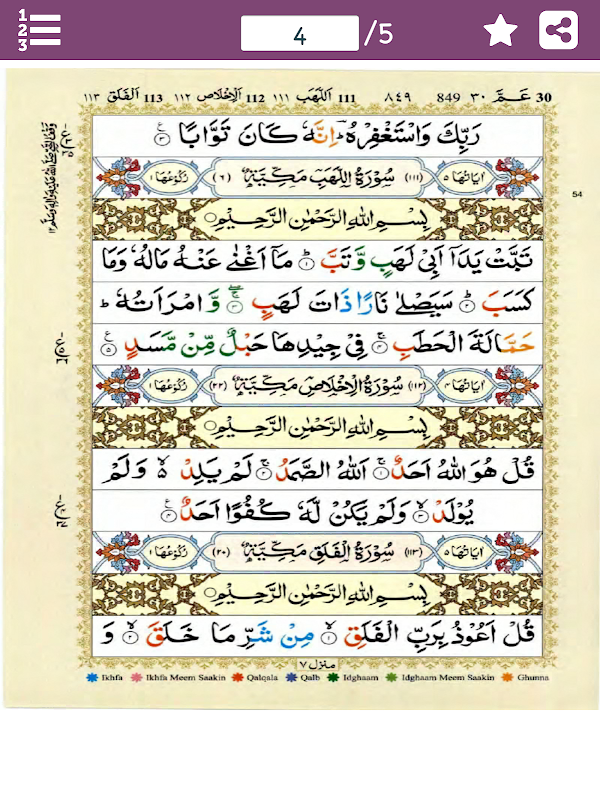 1
2
3
4 /5
١١٣ الفلق 113 ١١٢ الإخلاص 112 ١١١ اللهب 111 ٨٤٩ 849 ٣٠ عم 30
رَبِّكَ وَاسْتَغْفِرْهُ ؕ اِنَّهٗ كَانَ تَوَّابًا ۟ ٣
اٰیَاتُهَا ٥ (١١١) سُوْرَةُ اللَّهَبِ مَكِّیَّةٌ (٦) رُكُوْعُهَا ١
بِسْمِ اللهِ الرَّحْمٰنِ الرَّحِیْمِ
54
تَبَّتْ یَدَاۤ اَبِیْ لَهَبٍ وَّتَبَّ ؕ ١ مَاۤ اَغْنٰی عَنْهُ مَالُهٗ وَمَا
كَسَبَ ؕ ٢ سَیَصْلٰی نَارًا ذَاتَ لَهَبٍ ۚۖ ٣ وَّ امْرَاَتُهٗ ؕ
حَمَّالَةَ الْحَطَبِ ۚ ٤ فِیْ جِیْدِهَا حَبْلٌ مِّنْ مَّسَدٍ ٥
اٰیَاتُهَا ٤ (١١٢) سُوْرَةُ الْاِخْلَاصِ مَكِّیَّةٌ (٢٢) رُكُوْعُهَا ١
بِسْمِ اللهِ الرَّحْمٰنِ الرَّحِیْمِ
قُلْ هُوَ اللهُ اَحَدٌ ۚ ١ اَللهُ الصَّمَدُ ۚ ٢ لَمْ یَلِدْ ۙ وَلَمْ
یُوْلَدْ ۙ ٣ وَلَمْ یَكُنْ لَّهٗ كُفُوًا اَحَدٌ ٤
اٰیَاتُهَا ٥ (١١٣) سُوْرَةُ الْفَلَقِ مَكِّیَّةٌ (٢٠) رُكُوْعُهَا ١
بِسْمِ اللهِ الرَّحْمٰنِ الرَّحِیْمِ
قُلْ اَعُوْذُ بِرَبِّ الْفَلَقِ ۙ ١ مِنْ شَرِّ مَا خَلَقَ ۙ ٢ وَ
منزل ٧
Ikhfa Ikhfa Meem Saakin Qalqala Qalb Idghaam Idghaam Meem Saakin Ghunna